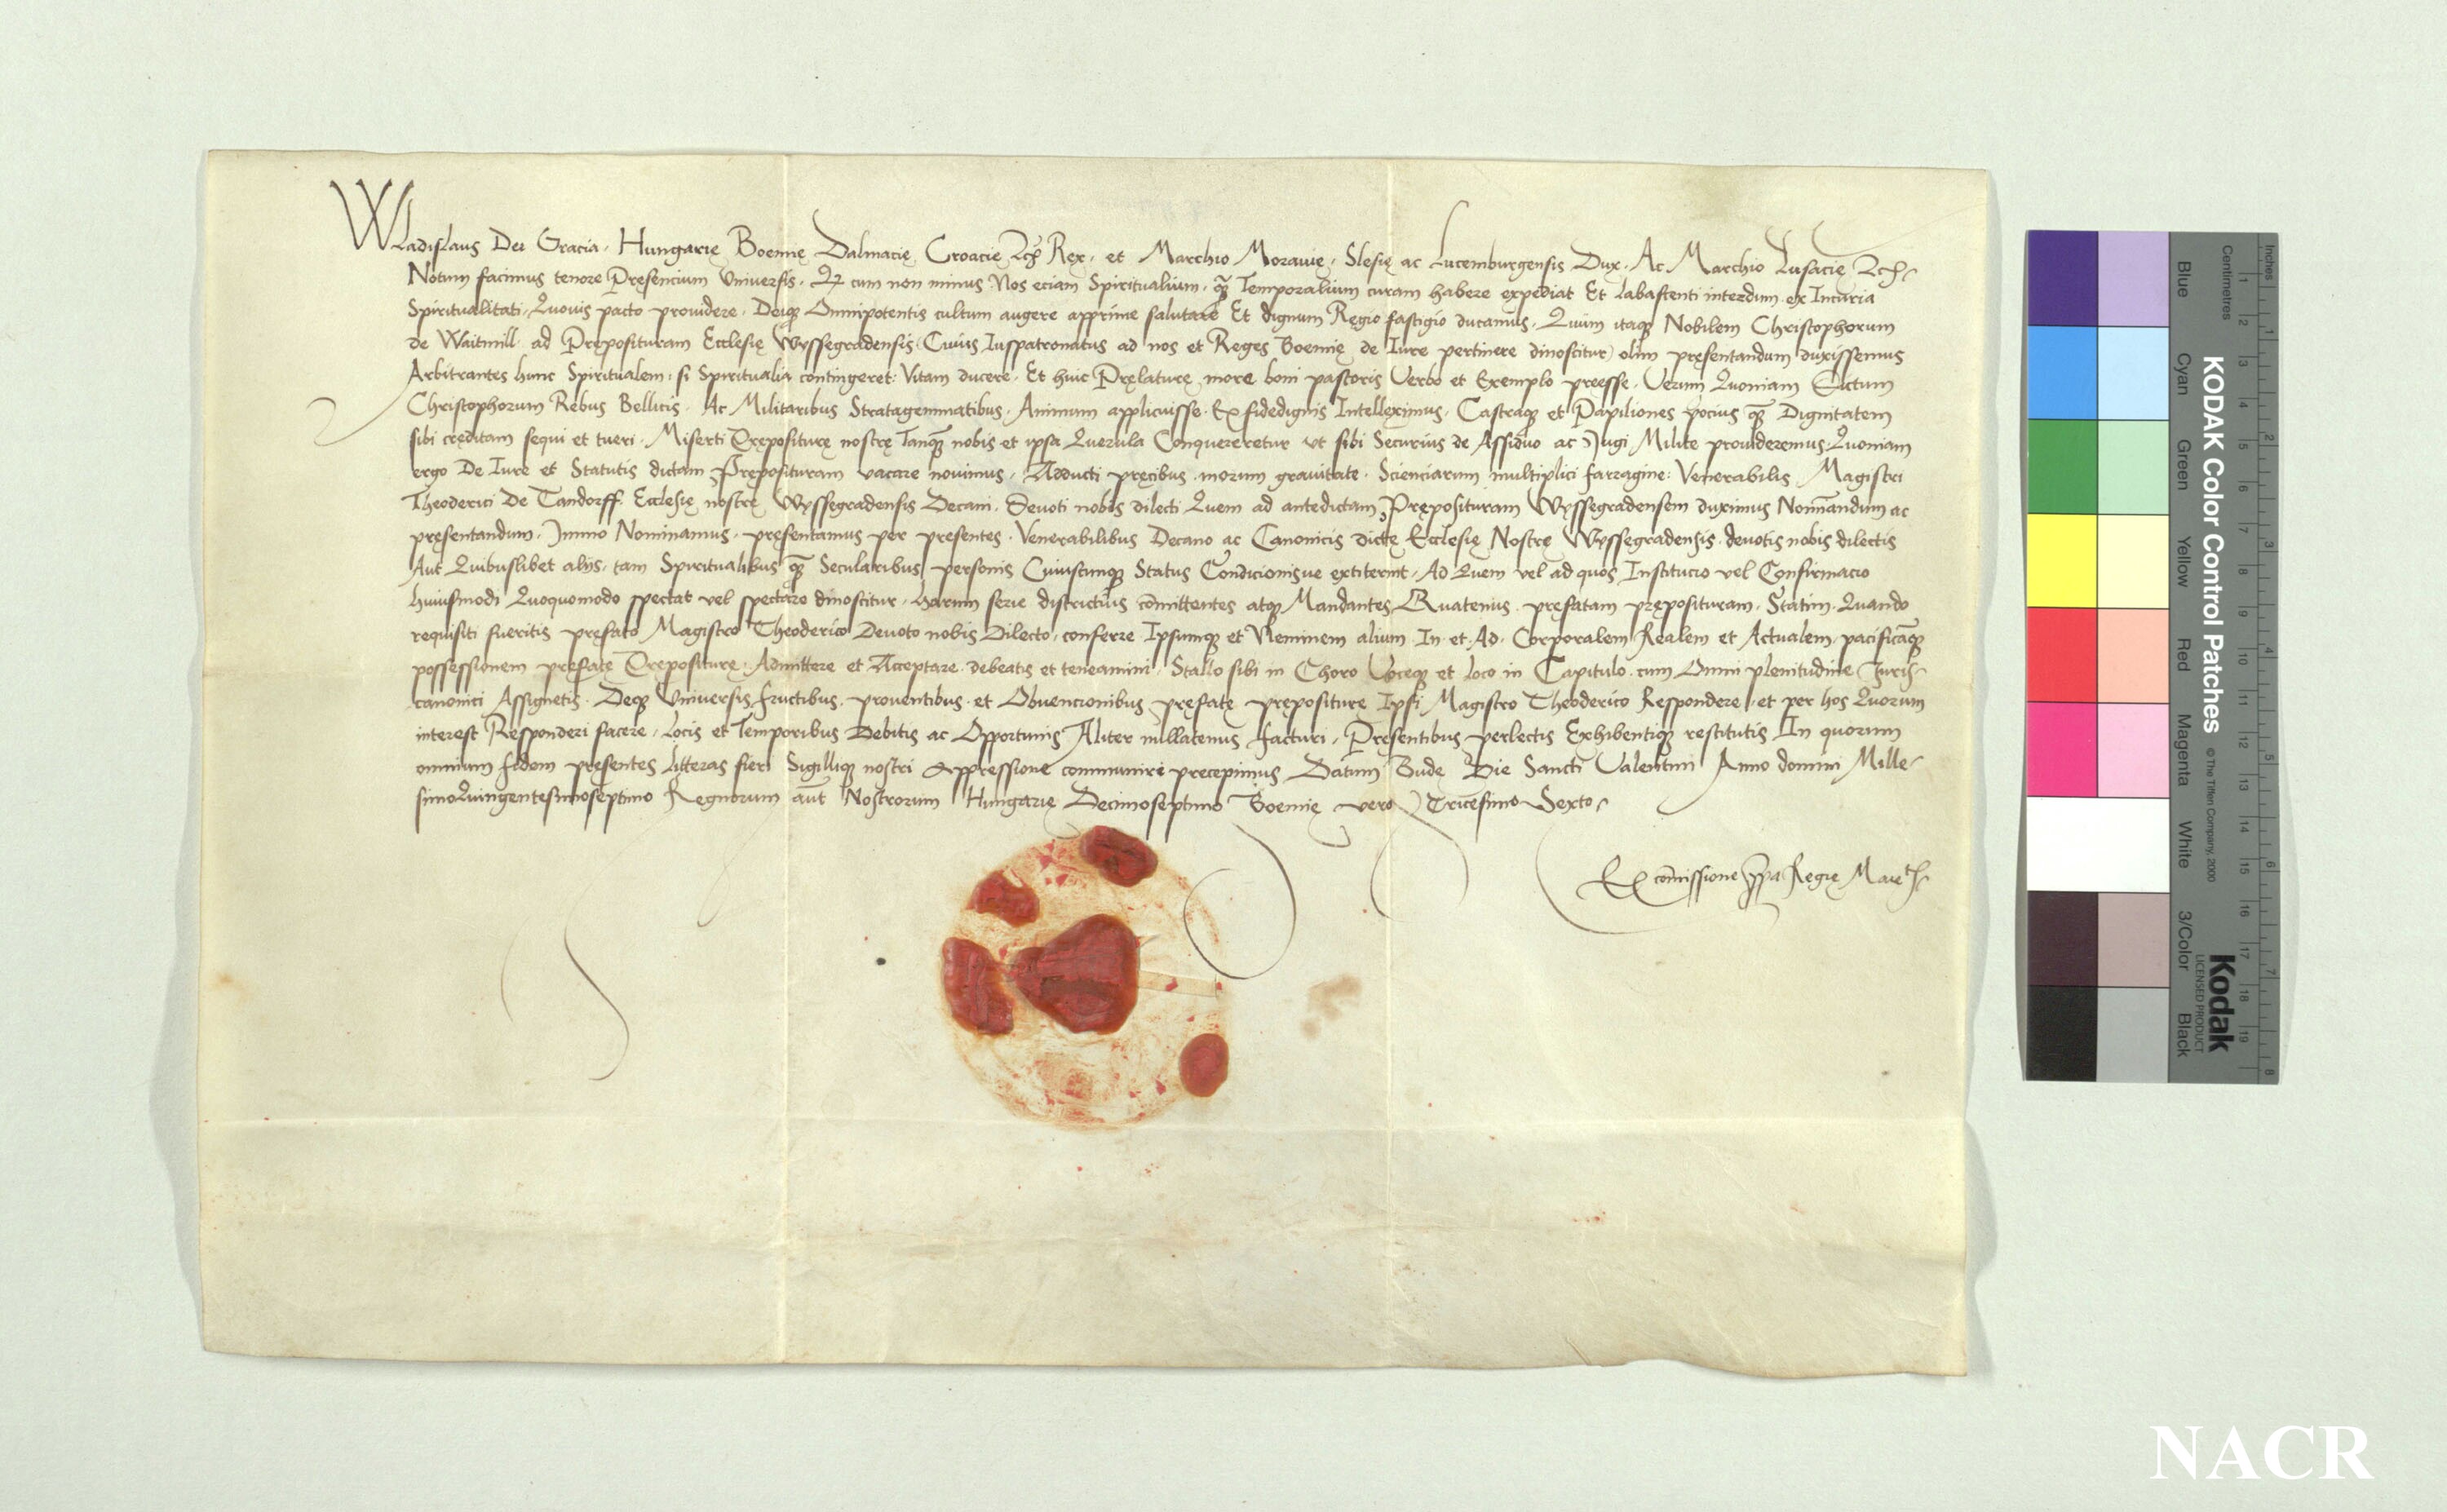 Wladislaus Dei Gracia. Hungarię Boemię Dalmacię Croacię Rex. et Marchio Morauię. Slesię ac Lucemburgensis Dux. Ac Marchio Lusacię
Notum facimus tenore Presencium Vniuersis. cum non minus Nos eciam Spiritualium. Temporalium curam habere expediat Et labascenti interdum ex Incuria
Spiritualitati, Quouis pacto prouidere. Deiqȝ Omnipotentis cultum augere apprime salutare Et dignum Regio fastigio ducamus. Quum itaqȝ Nobilem Christophorum
de Waitmill ad Pręposituram Ecclesię Wyssegradensis (Cuius Iuspatronatus ad nos et Reges Boemię de Iure pertinere dinoscitur) olim pręsentandum duxissemus
Arbitrantes hunc Spiritualem: si Spiritualia contingeret: Vitam ducere. Et huic Pręlaturę more boni pastoris Verbo et Exemplo preesse. Verum Quoniam Dictum
Christophorum Rebus Bellicis. Ac Militaribus Stratagemmatibus. Animum applicuisse. Ex fidedignis Intelleximus. Castraqȝ et Papiliones pocius qȝ̄ Dignitatem
sibi creditam sequi et tueri. Miserti Prepositurę nostrę Tanqȝ̄ nobis et ipsa Querula Conquereretur vt sibi Securius de Assiduo ac Jugi Milite prouideremus. Quoniam
ergo De Iure et Statutis dictam Pręposituram vacare nouimus. Adducti pręcibus morum grauitate. Scienciarum multiplici farragine: Venerabilis Magistri
Theoderici De Tandorff. Ecclesię nostrę Wyssegradensis Decani. Deuoti nobis dilecti Quem ad antedictam Pręposituram Wyssegradensem duximus Nomīandum ac
pręsentandum. Immo Nominamus. pręsentamus per pręsentes. Venerabilibus Decano ac Canonicis dictę Ecclesię Nostrę Wyssegradensis. deuotis nobis dilectis
Aut Quibuslibet alijs. tam Spiritualibus qȝ̄ Secularibus personis Cuiuscunqȝ Status Condicionisue extiterint. Ad Quem vel ad quos Institucio vel Confirmacio
huiusmodi Quoquomodo spectat vel spectare dinoscitur. harum serie districtius cōmittentes atqȝ Mandantes Quatenus prefatam pręposituram. Statim. Quando
requisiti fueritis prefato Magistro Theoderico Deuoto nobis Dilecto, conferre Ipsumqȝ et Neminem alium In et Ad. Corporalem Realem et Actualem. pacificāqȝ
possessionem prefatę Prepositurę. Admittere et Acceptare debeatis et teneamini. Stallo sibi in Choro Voceqȝ et loco in Capitulo cum Omni plenitudine Juris
canonici Assignetis. Deqȝ Vniuersis fructibus. prouentibus et Obuencionibus pręfatę prepositurę Ipsi Magistro Theoderico Respondere. et per hos Quorum
interest Responderi facere. Locis et Temporibus Debitis ac Opportunis Aliter nullatenus facturi. Presentibus perlectis Exhibentiqȝ restitutis In quorum
omnium fidem presentes litteras fieri Sigilliqȝ nostri appressione communiri precepimus Datum Bude Die Sancti Valentini Anno domini Mille-
simoQuingentesimoseptimo Regnorum aūt Nostrorum Hungarię Decimoseptimo Boemię vero Tricesimo Sexto.
Ex cōmissione Regię
KODAK Color Control Patches
© The Tiffen Company, 2000
Kodak
LICENSED PRODUCT
Inches
Centimetres
Blue
Cyan
Green
Yellow
Red
Magenta
White
3/Color
Black
1 2 3 4 5 6 7 8 9 10 11 12 13 14 15 16 17 18 19
1 2 3 4 5 6 7 8
NACR